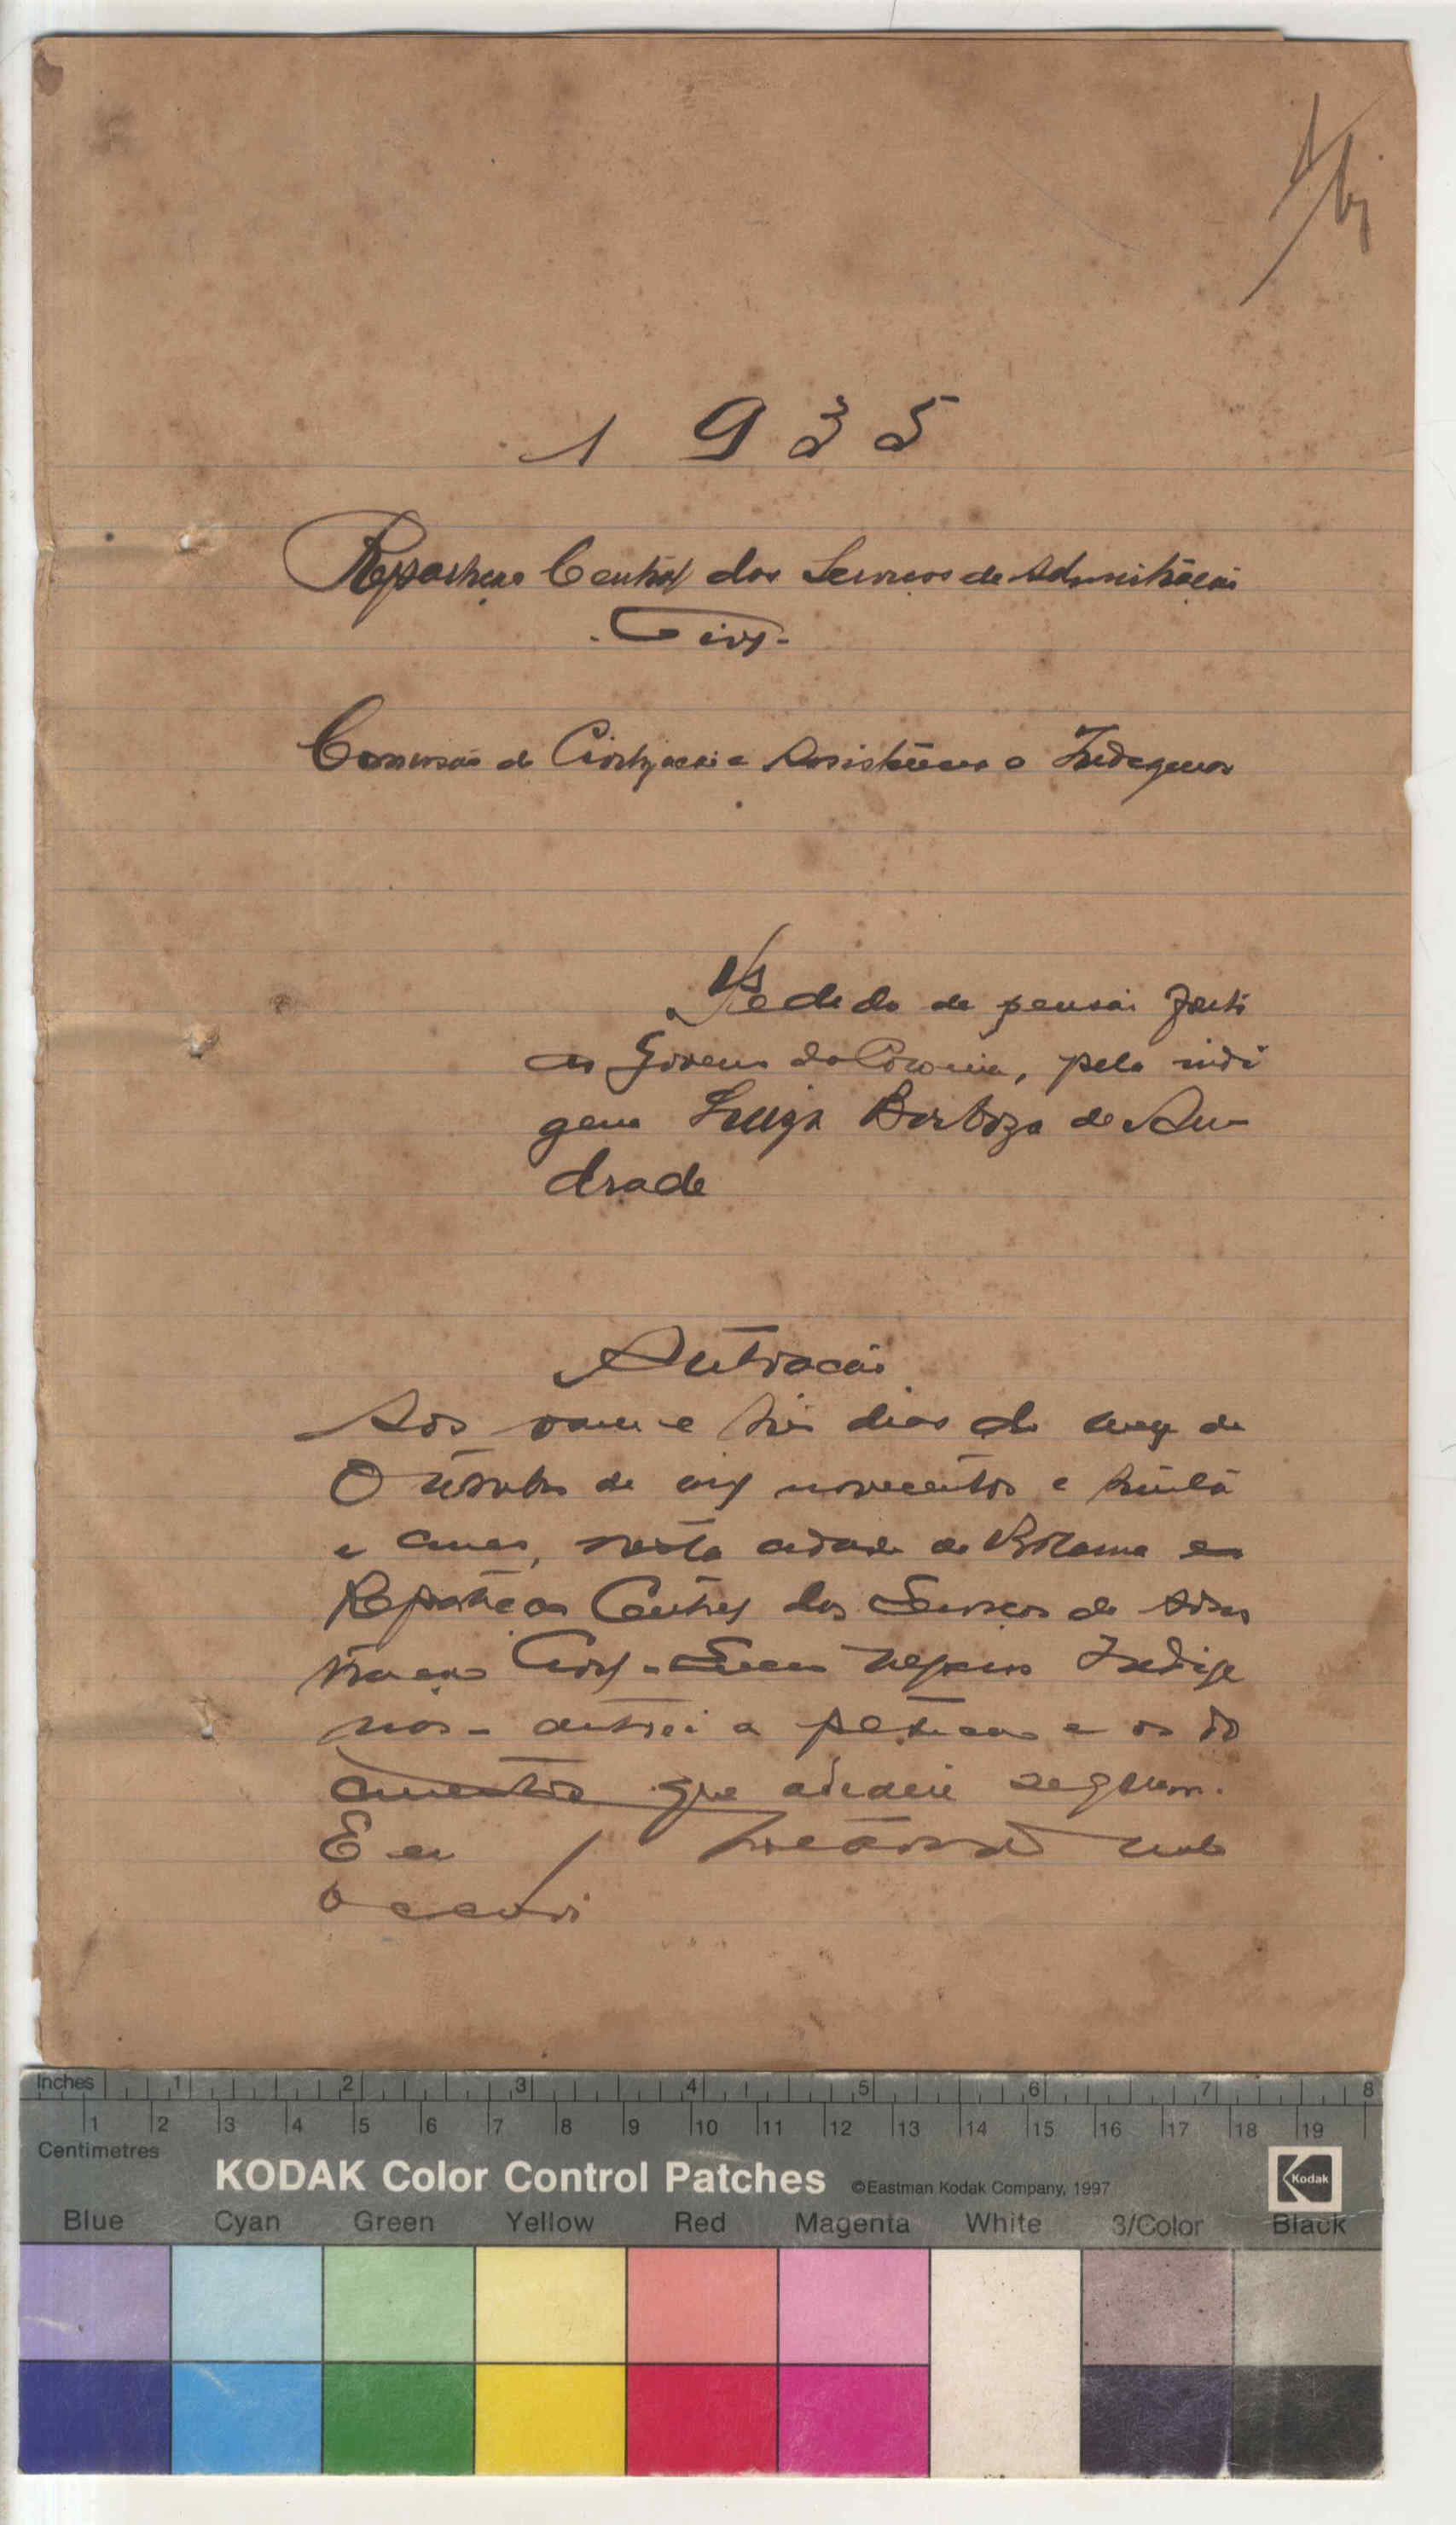 1935
Repartição Central dos Serviços de Administração
Civil
Comissão de Civilização e Assistência a Indígenas
Pedido de pensão feito
ao Governo da Colonia, pela indi
gena Luiza Barboza de An-
drade
Autuação
Aos vinte e três dias do mez de
Outubro de mil novecentos e trinta
e cinco, nesta cidade de Bolama e
Repartição Central dos Serviços de Admi
tração Civil - Secção Negocios Indige
nas - autuei a petição e os do
cumentos que adiante seguem.
E eu
o escrevi
Inches 1 2 3 4 5 6 7 8
1 2 3 4 5 6 7 8 9 10 11 12 13 14 15 16 17 18 19
Centimetres
KODAK Color Control Patches ©Eastman Kodak Company, 1997 Kodak
Blue Cyan Green Yellow Red Magenta White 3/Color Black